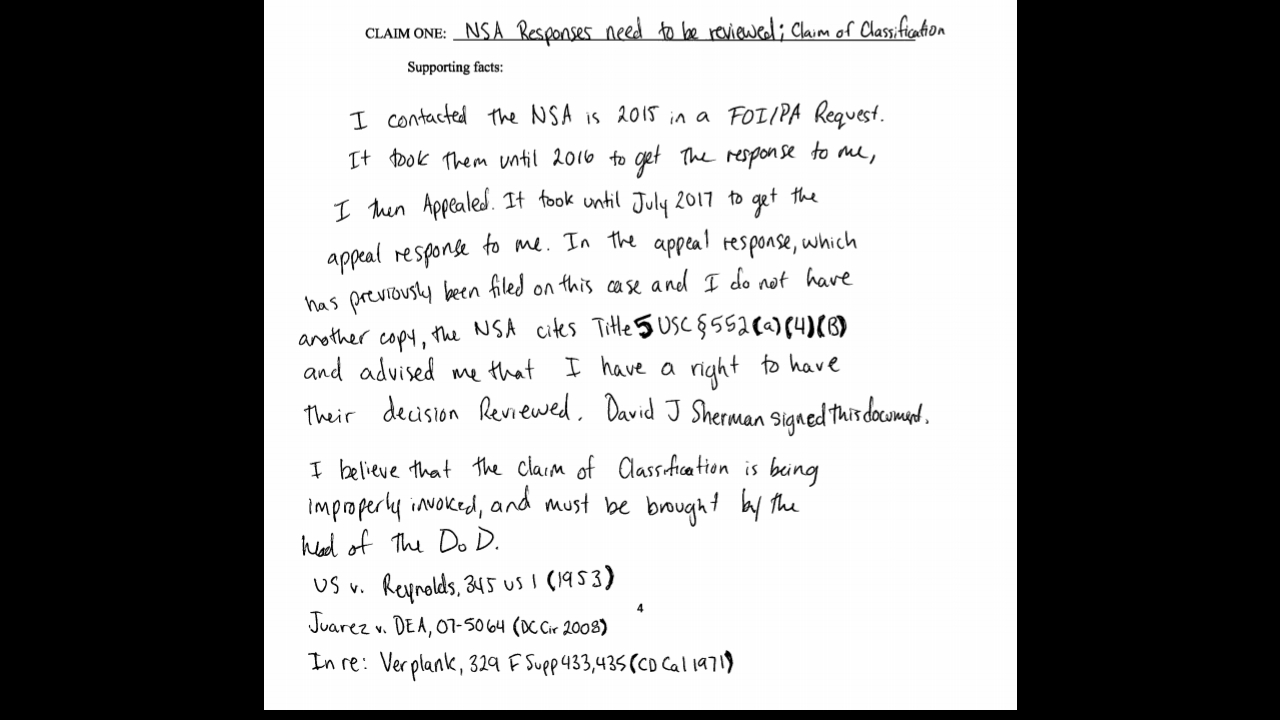 CLAIM ONE: NSA Responses need to be reviewed; Claim of Classification
Supporting facts:
I contacted the NSA is 2015 in a FOI/PA Request.
It took them until 2016 to get the response to me,
I then Appealed. It took until July 2017 to get the
appeal response to me. In the appeal response, which
has previously been filed on this case and I do not have
another copy, the NSA cites Title 5 USC § 552(a)(4)(B)
and advised me that I have a right to have
their decision Reviewed. David J Sherman signed this document.
I believe that the claim of Classification is being
improperly invoked, and must be brought by the
head of the DoD.
US v. Reynolds, 345 US 1 (1953)
4
Juarez v. DEA, 07-5064 (DC Cir 2008)
In re: Verplank, 329 F Supp 433, 435 (CD Cal 1971)